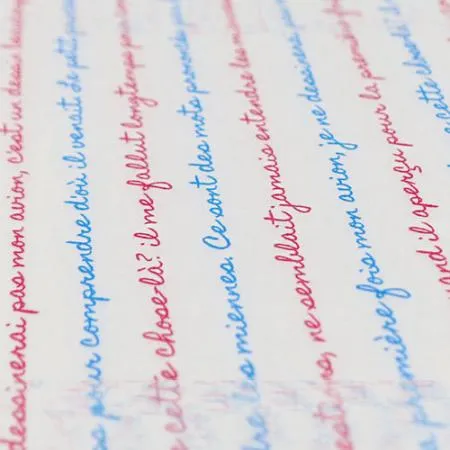 dessinerai pas mon avion, c'est un dessin
pour comprendre d'où il venait. Le petit prince
cette chose-là? il me fallut longtemps
les miennes. Ce sont des mots prononcés
ne semblait jamais entendre les
première fois mon avion, je ne dessinerai
quand il aperçu pour la première
première cette chose